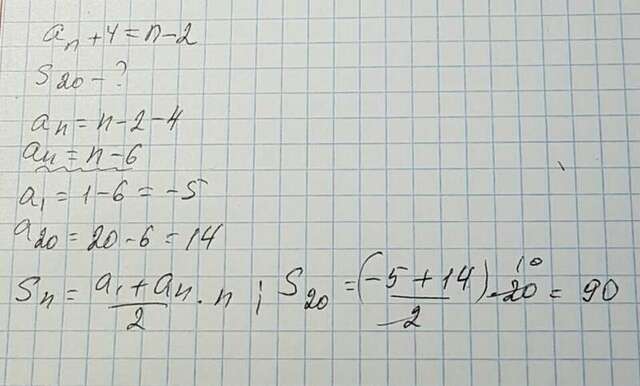 aₙ + 4 = n - 2
S₂₀ - ?
aₙ = n - 2 - 4
aₙ = n - 6
a₁ = 1 - 6 = -5
a₂₀ = 20 - 6 = 14
Sₙ = (a₁ + aₙ)/2 · n ; S₂₀ = (-5 + 14)/2 · 20 10 = 90